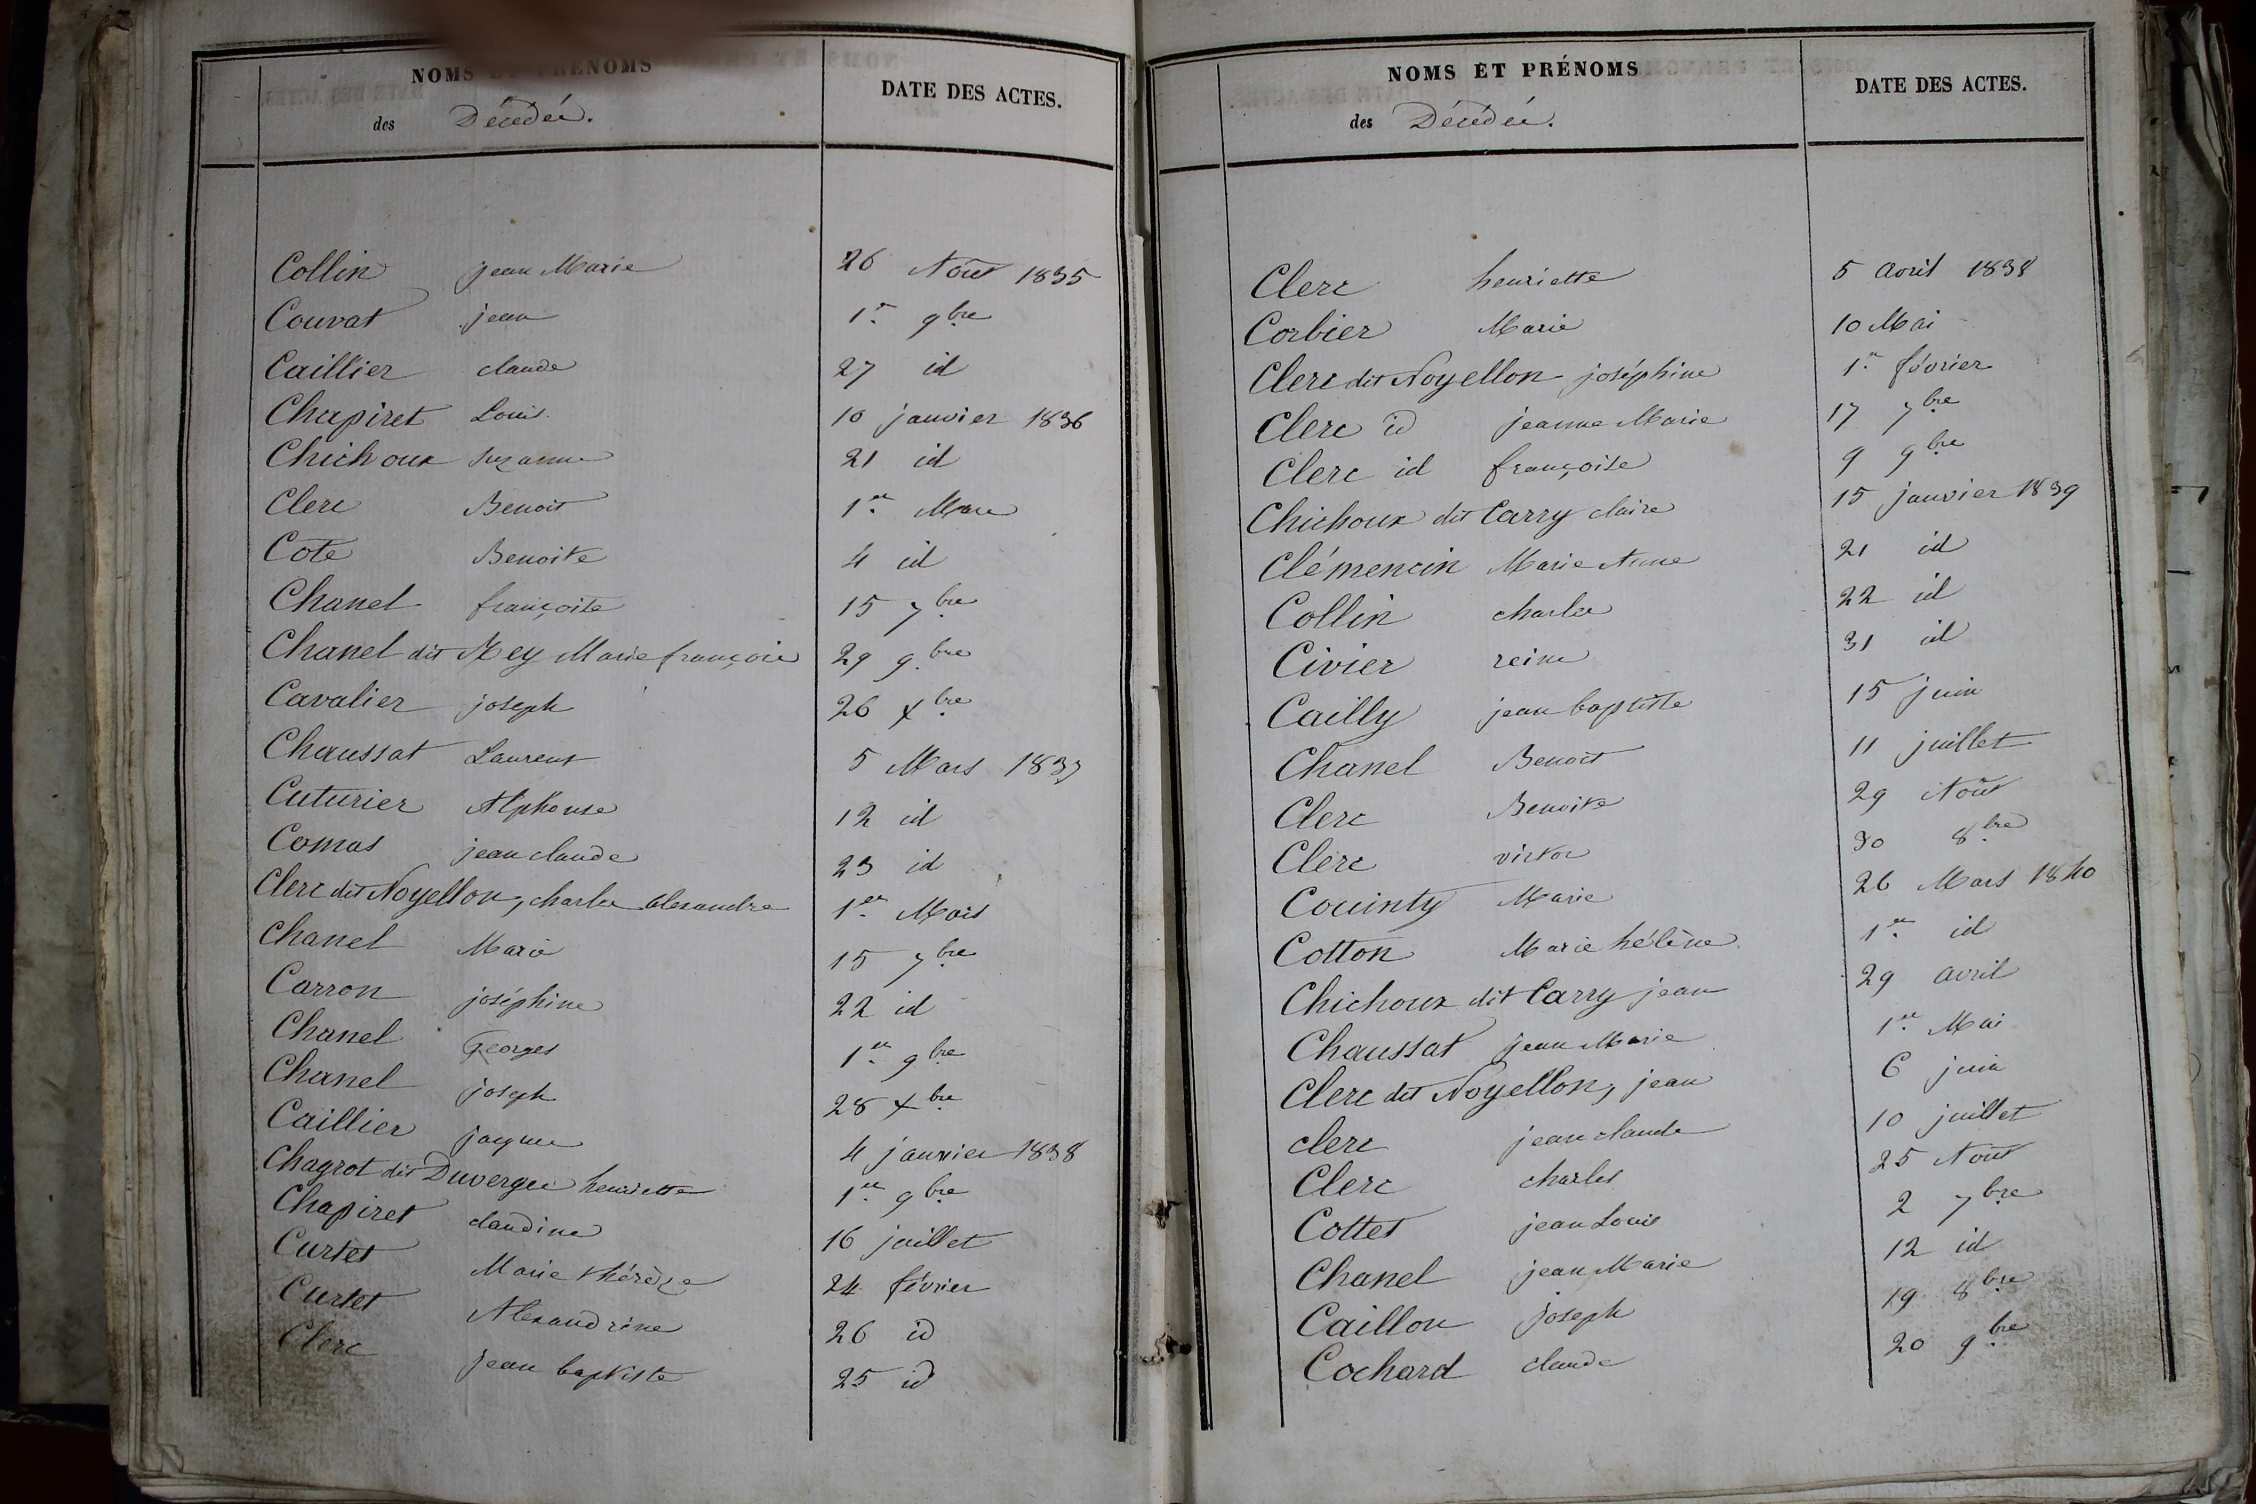 NOMS ET PRÉNOMS
des Décédés.
DATE DES ACTES.
Collin jean Marie 26 Août 1835
Couvat jean 1er 9bre
Caillier claude 27 id
Chapiret Louis 10 janvier 1836
Chichoux Suzanne 21 id
Clerc Benoit 1er Mars
Cote Benoite 4 id
Chanel françoise 15 7bre
Chanel dit Rey Marie françoise 29 9bre
Cavalier joseph 26 Xbre
Chaussat Laurent 5 Mars 1837
Cuturier Alphonse 12 id
Comas jean claude 23 id
Clerc dit Noyellon, charles alexandre 1er Mars
Chanel Marie 15 7bre
Carron joséphine 22 id
Chanel Georges 1er 9bre
Chanel joseph 28 Xbre
Caillier jacques 4 janvier 1838
Chagrot dit Duverger henriette 1er 9bre
Chapiret claudine 16 juillet
Curtet Marie thérèze 24 février
Curtet Alexandrine 26 id
Clerc jean baptiste 25 id
NOMS ET PRÉNOMS
des Décédés.
DATE DES ACTES.
Clerc henriette 5 avril 1838
Corbier Marie 10 Mai
Clerc dit Noyellon joséphine 1er février
Clerc id jeanne Marie 17 7bre
Clerc id françoise 9 9bre
Chichoux dit Carry claire 15 janvier 1839
Clémencin Marie Anne 21 id
Collin charles 22 id
Civier reine 31 id
Cailly jean baptiste 15 juin
Chanel Benoit 11 juillet
Clerc Benoite 29 Août
Clerc victor 30 8bre
Couinty Marie 26 Mars 1840
Cotton Marie hélène 1er id
Chichoux dit Carry jean 29 avril
Chaussat jean Marie 1er Mai
Clerc dit Noyellon, jean 6 juin
clerc jean claude 10 juillet
Clerc charles 25 Août
Cottet jean Louis 2 7bre
Chanel jean Marie 12 id
Caillon joseph 19 8bre
Cochard claude 20 9bre